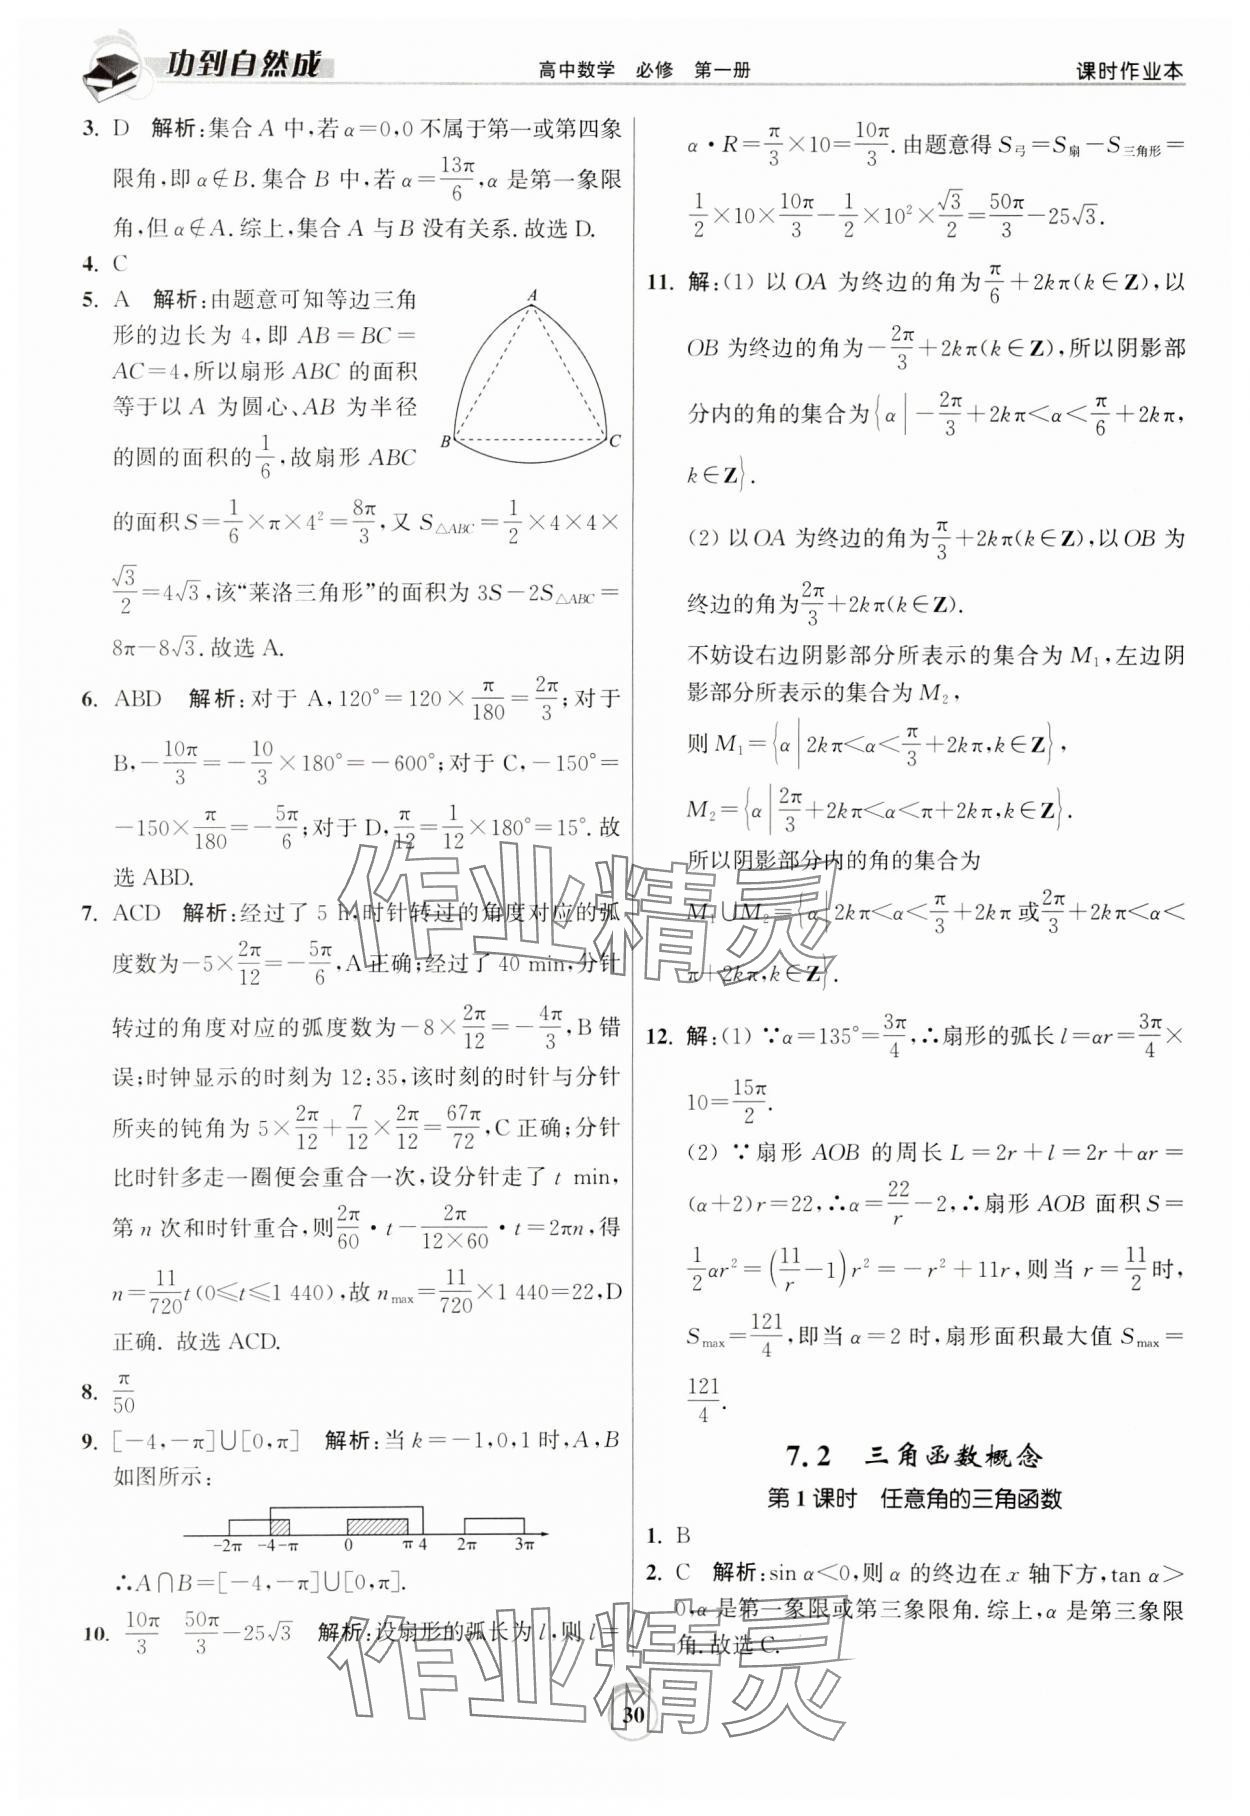 功到自然成
高中数学 必修 第一册
课时作业本
3. D 解析:集合 A 中,若 α=0,0 不属于第一或第四象
限角,即 α∉B. 集合 B 中,若 α=13π/6,α 是第一象限
角,但 α∉A. 综上,集合 A 与 B 没有关系. 故选 D.
4. C
5. A 解析:由题意可知等边三角
形的边长为 4,即 AB=BC=
AC=4,所以扇形 ABC 的面积
等于以 A 为圆心、AB 为半径
的圆的面积的1/6,故扇形 ABC
A
B
C
的面积 S=1/6×π×4²=8π/3,又 S△ABC=1/2×4×4×
√3/2=4√3,该“莱洛三角形”的面积为 3S-2S△ABC=
8π-8√3. 故选 A.
6. ABD 解析:对于 A,120°=120×π/180=2π/3;对于
B,-10π/3=-10/3×180°=-600°;对于 C,-150°=
-150×π/180=-5π/6;对于 D,π/12=1/12×180°=15°. 故
选 ABD.
7. ACD 解析:经过了 5 h,时针转过的角度对应的弧
度数为-5×2π/12=-5π/6,A 正确;经过了 40 min,分针
转过的角度对应的弧度数为-8×2π/12=-4π/3,B 错
误;时钟显示的时刻为 12:35,该时刻的时针与分针
所夹的钝角为 5×2π/12+7/12×2π/12=67π/72,C 正确;分针
比时针多走一圈便会重合一次,设分针走了 t min,
第 n 次和时针重合,则2π/60·t-2π/(12×60)·t=2πn,得
n=11/720t(0≤t≤1 440),故 nmax=11/720×1 440=22,D
正确. 故选 ACD.
8. π/50
9. [-4,-π]∪[0,π] 解析:当 k=-1,0,1 时,A,B
如图所示:
-2π -4 -π 0 π 4 2π 3π
∴A∩B=[-4,-π]∪[0,π].
10. 10π/3 50π/3-25√3 解析:设扇形的弧长为 l,则 l=
α·R=π/3×10=10π/3. 由题意得 S弓=S扇-S三角形=
1/2×10×10π/3-1/2×10²×√3/2=50π/3-25√3.
11. 解:(1) 以 OA 为终边的角为π/6+2kπ(k∈Z),以
OB 为终边的角为-2π/3+2kπ(k∈Z),所以阴影部
分内的角的集合为{α|-2π/3+2kπ<α<π/6+2kπ,
k∈Z}.
(2) 以 OA 为终边的角为π/3+2kπ(k∈Z),以 OB 为
终边的角为2π/3+2kπ(k∈Z).
不妨设右边阴影部分所表示的集合为 M₁,左边阴
影部分所表示的集合为 M₂,
则 M₁={α|2kπ<α<π/3+2kπ,k∈Z},
M₂={α|2π/3+2kπ<α<π+2kπ,k∈Z}.
所以阴影部分内的角的集合为
M₁∪M₂={α|2kπ<α<π/3+2kπ 或2π/3+2kπ<α<
π+2kπ,k∈Z}.
12. 解:(1) ∵α=135°=3π/4,∴扇形的弧长 l=αr=3π/4×
10=15π/2.
(2) ∵扇形 AOB 的周长 L=2r+l=2r+αr=
(α+2)r=22,∴α=22/r-2,∴扇形 AOB 面积 S=
1/2αr²=(11/r-1)r²=-r²+11r,则当 r=11/2时,
Smax=121/4,即当 α=2 时,扇形面积最大值 Smax=
121/4.
7.2 三角函数概念
第 1 课时 任意角的三角函数
1. B
2. C 解析:sin α<0,则 α 的终边在 x 轴下方,tan α>
0,α 是第一象限或第三象限角. 综上,α 是第三象限
角. 故选 C.
作业精灵
作业精灵
30